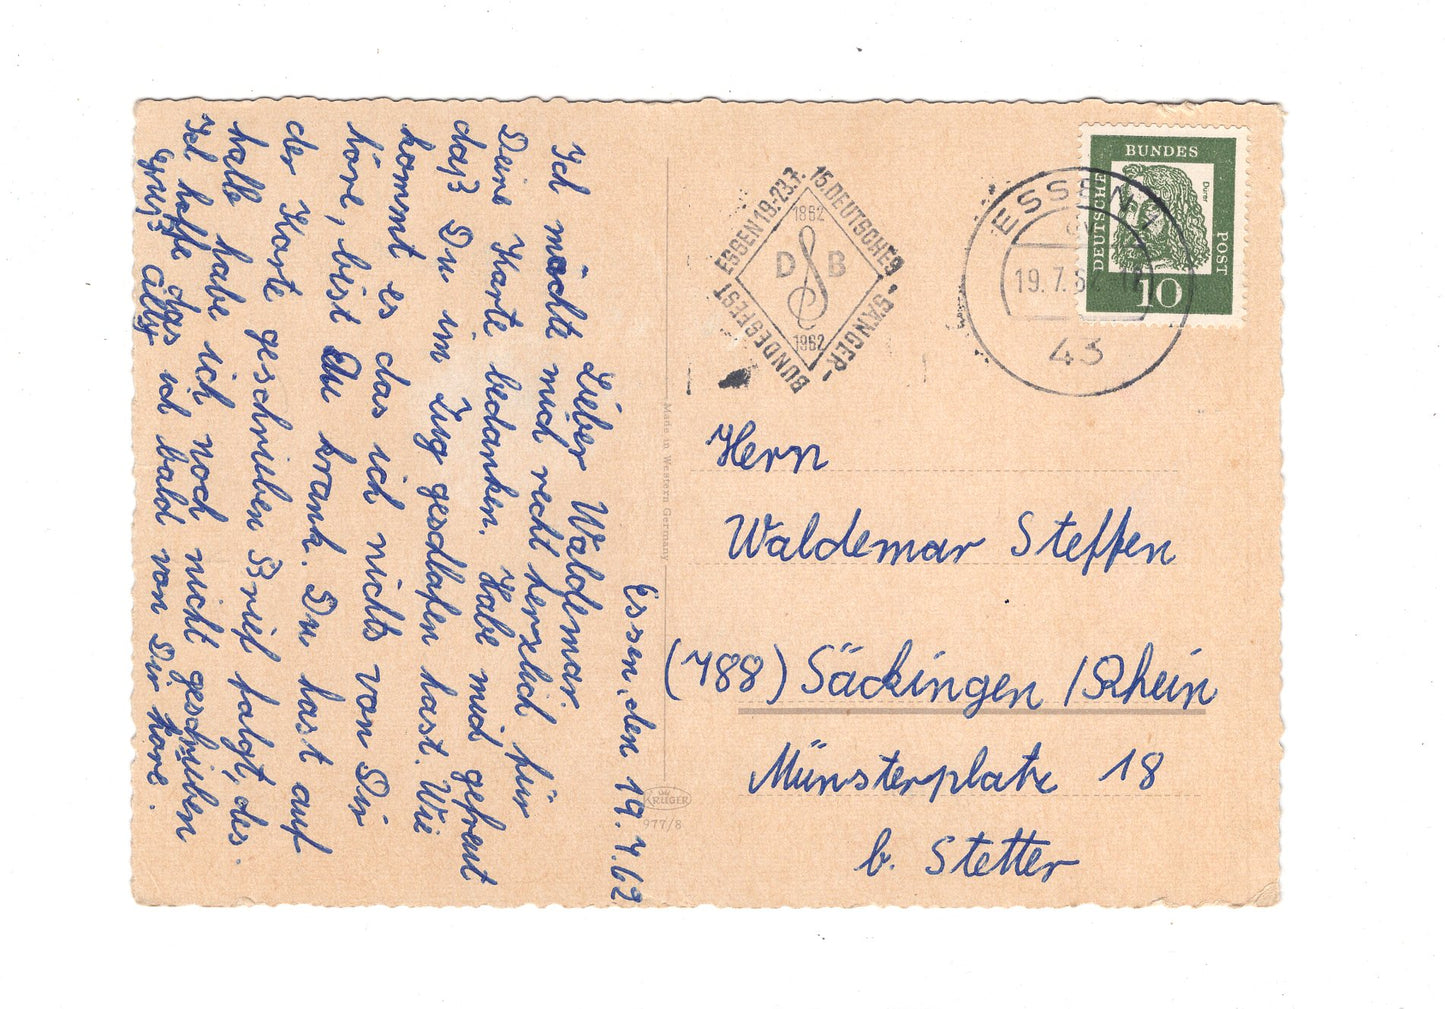 Essen, den 19.7.62
Lieber Waldemar.
Ich möchte mich recht herzlich für
Deine Karte bedanken. Habe mich gefreut
daß Du im Zug geschlafen hast. Wie
kommt es das ich nichts von Dir
höre, bist Du krank. Du hast auf
der Karte geschrieben Brief folgt, des-
halb habe ich noch nicht geschrieben
Ich hoffe das ich bald von Dir höre.
Gruß Cilly
Made in Western Germany
KRÜGER
977/8
15. DEUTSCHES
SÄNGER-
BUNDESFEST
ESSEN 19.-23.7.
1862
D S B
1962
ESSEN 1
19.7.62
43
DEUTSCHE
BUNDES
POST
Dürer
10
Herrn
Waldemar Steffen
(788) Säckingen /Rhein
Münsterplatz 18
b. Stetter